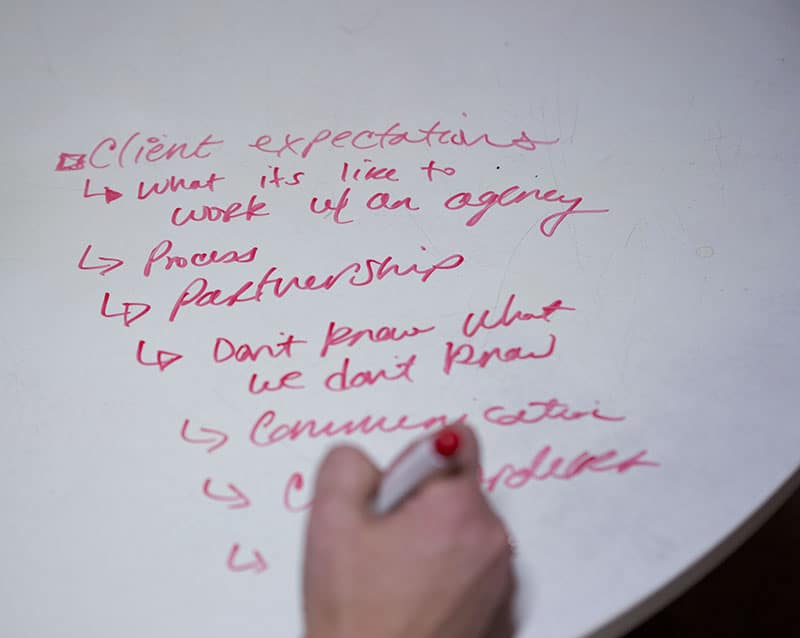 Client expectations
↳ What its like to
work w/ an agency
↳ Process
↳ Partnership
↳ Don't know what
we don't know
↳ Communication
↳ C
↳